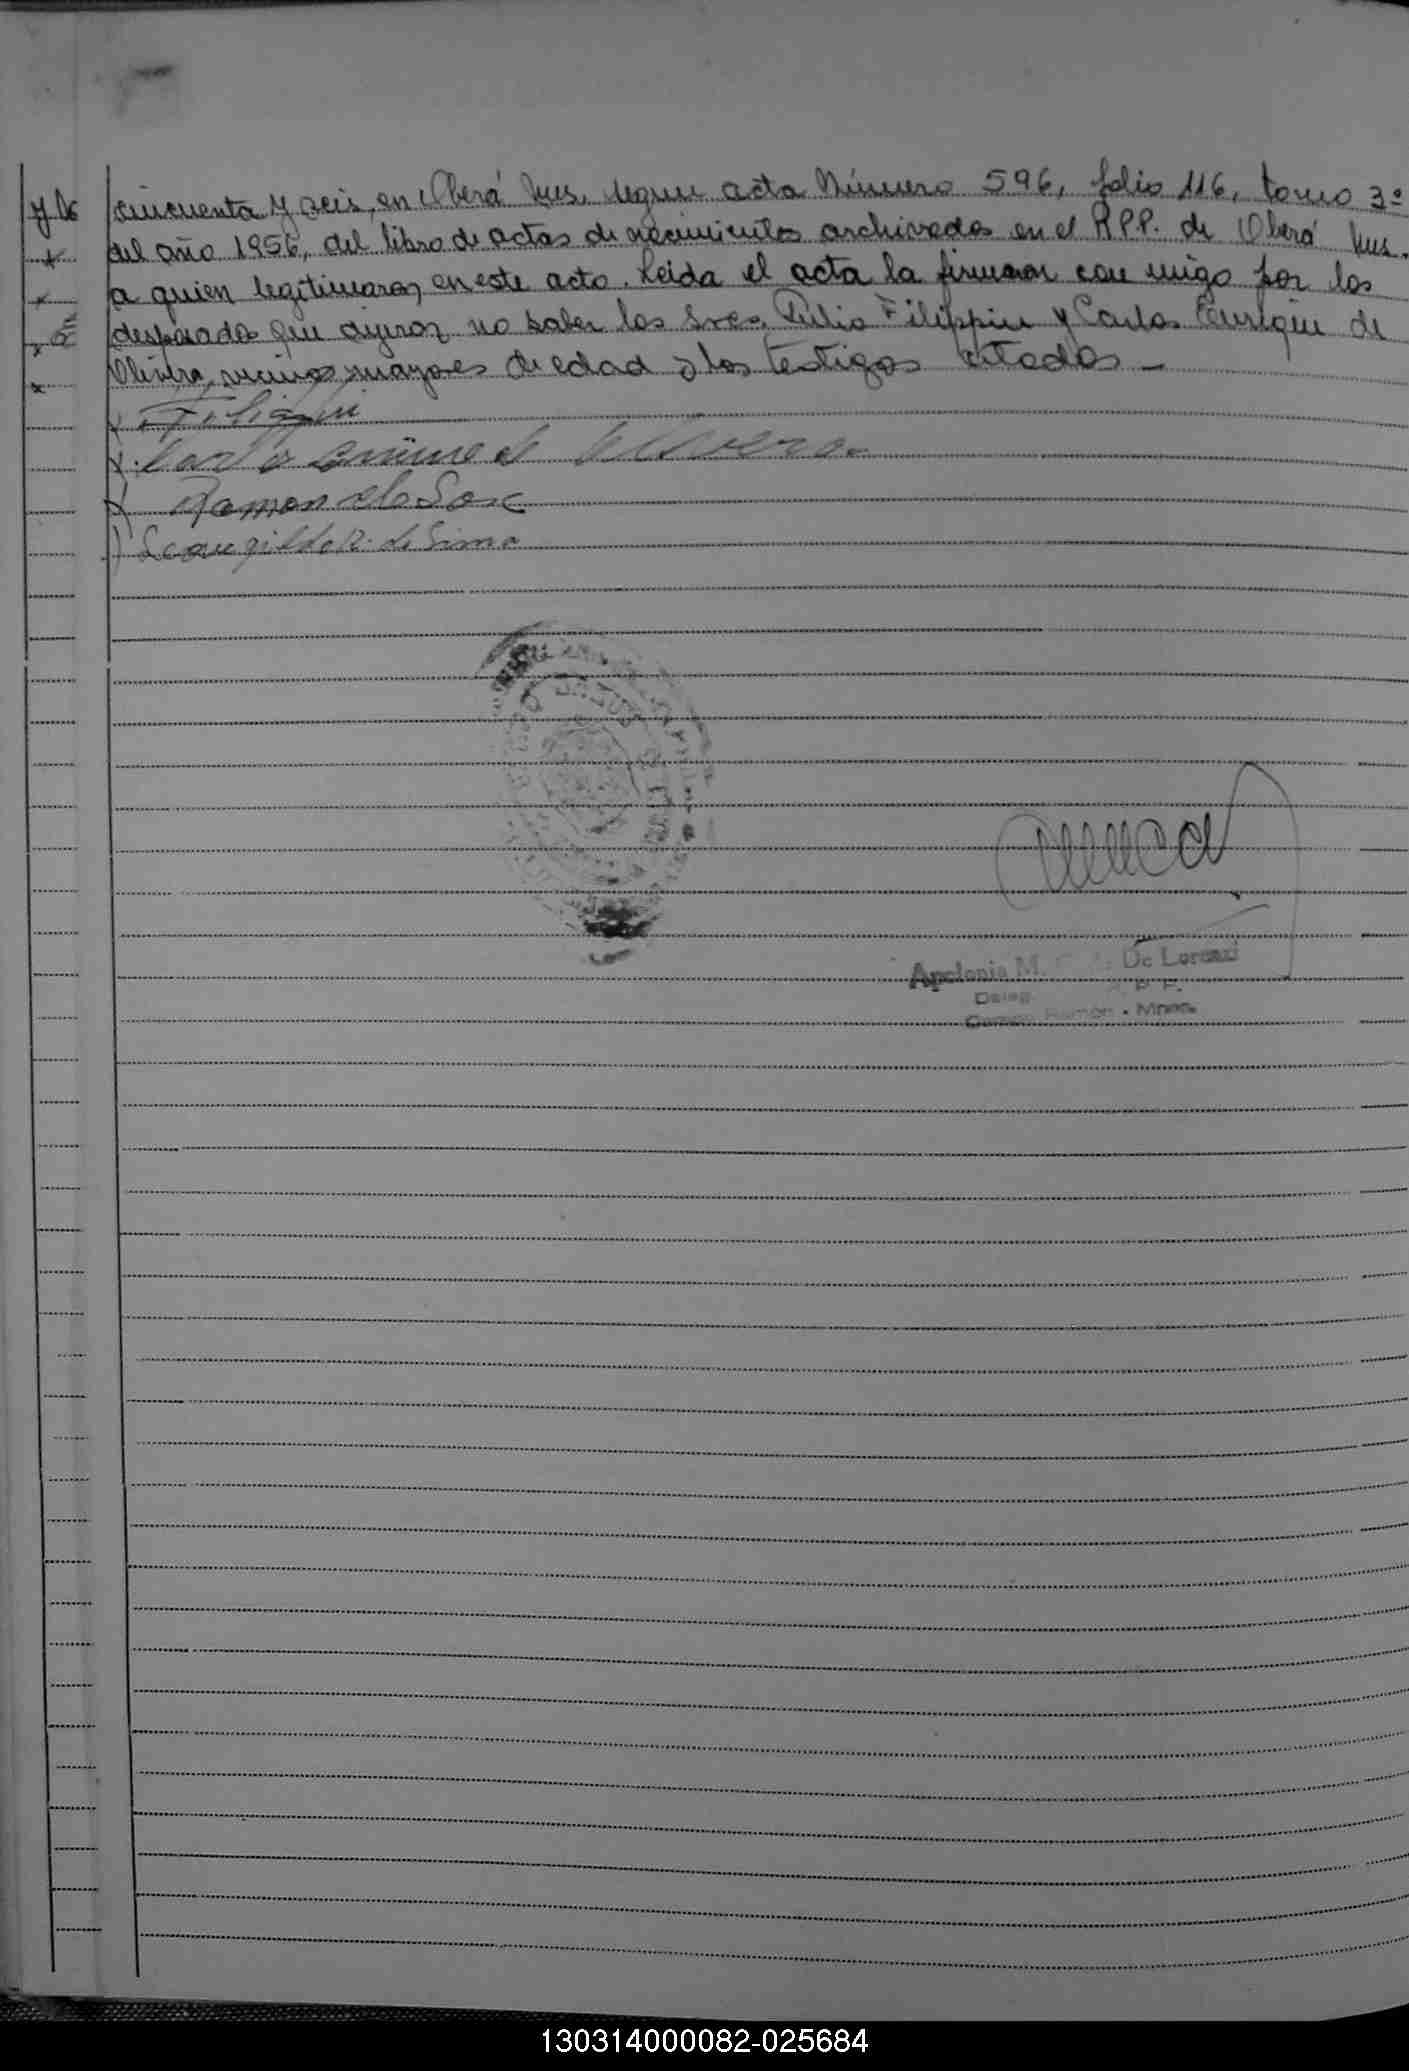 cincuenta y seis, en Oberá Mns. según acta Número 596, folio 116, tomo 3º
del año 1956, del libro de actas de nacimientos archivados en el R.P.P. de Oberá Mns.
a quien legitimaron en este acto. Leida el acta la firmaron con migo por los
desposados que dijeron no saber los Sres. Filippin y Carlos Enrique de
Olivera, vecinos, mayores de edad y los testigos citados —
Filippin
Carlo Enrique de Olivera
Ramon
Apolonia M. De Lorenzi
Deleg. R. P. P.
Campo Ramón - Mnes.
130314000082-025684